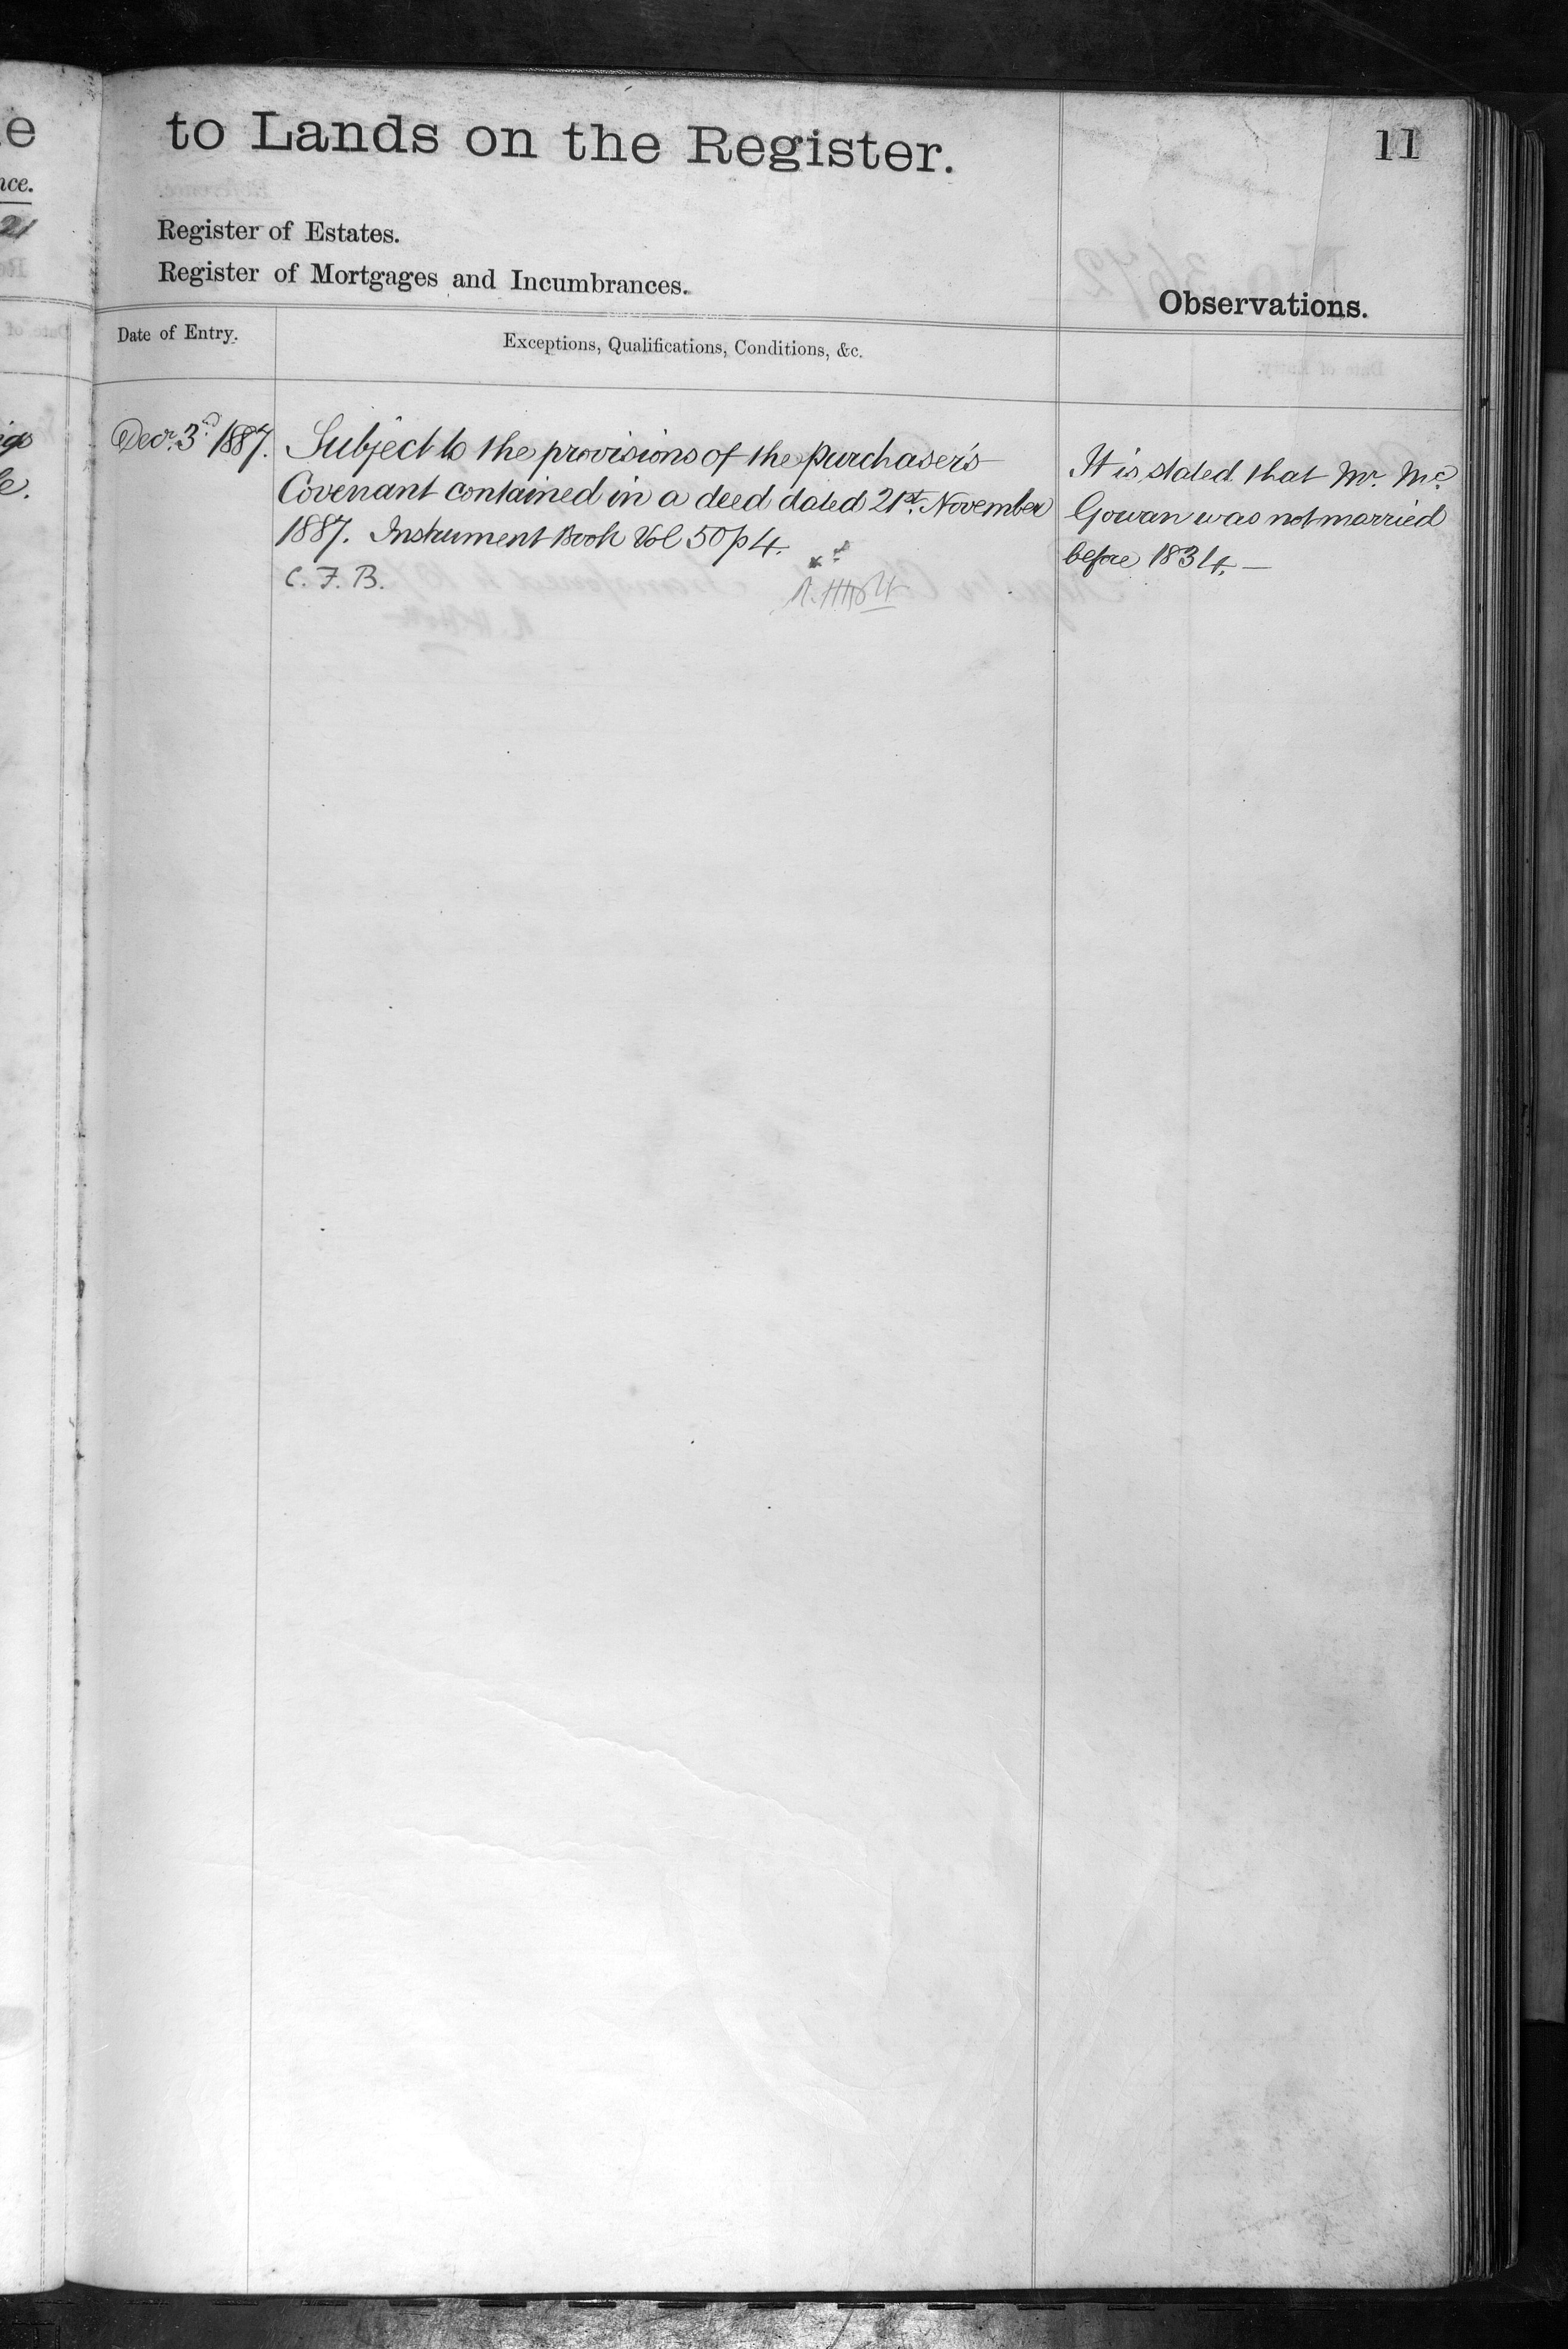 to Lands on the Register.
11
Register of Estates.
Register of Mortgages and Incumbrances.
Observations.
Date of Entry.
Exceptions, Qualifications, Conditions, &c.
Decr. 3rd 1887.
Subject to the provisions of the purchaser's
Covenant contained in a deed dated 21st. November
1887. Instrument Book Vol 50 p 4.
C. F. B.
It is stated that Mr. Mc.
Gowan was not married
before 1834. —
e
nce.
21